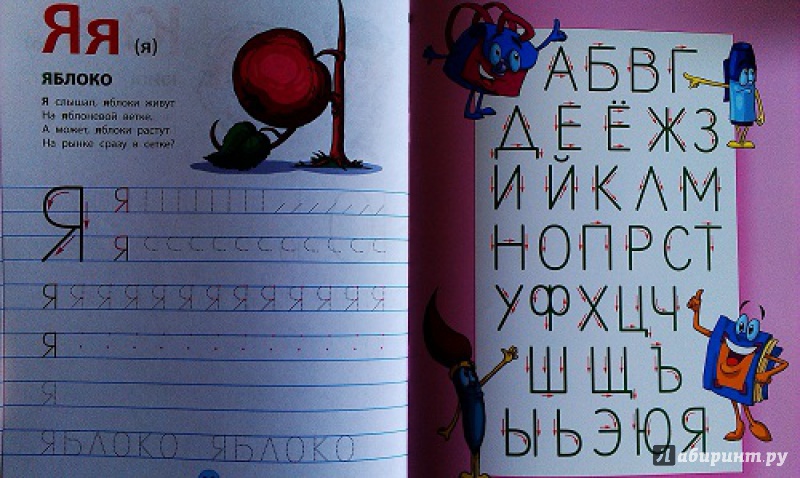 Яя (я)
ЯБЛОКО
Я слышал, яблоки живут
На яблоневой ветке.
А может, яблоки растут
На рынке сразу в сетке?
Я Я
Я
Я Я Я Я Я Я Я Я Я Я Я Я Я Я
Я
Я
ЯБЛОКО ЯБЛОКО
АБВГ
ДЕЁЖЗ
ИЙКЛМ
НОПРСТ
УФХЦЧ
ШЩЪ
ЫЬЭЮЯ
Лабиринт.ру